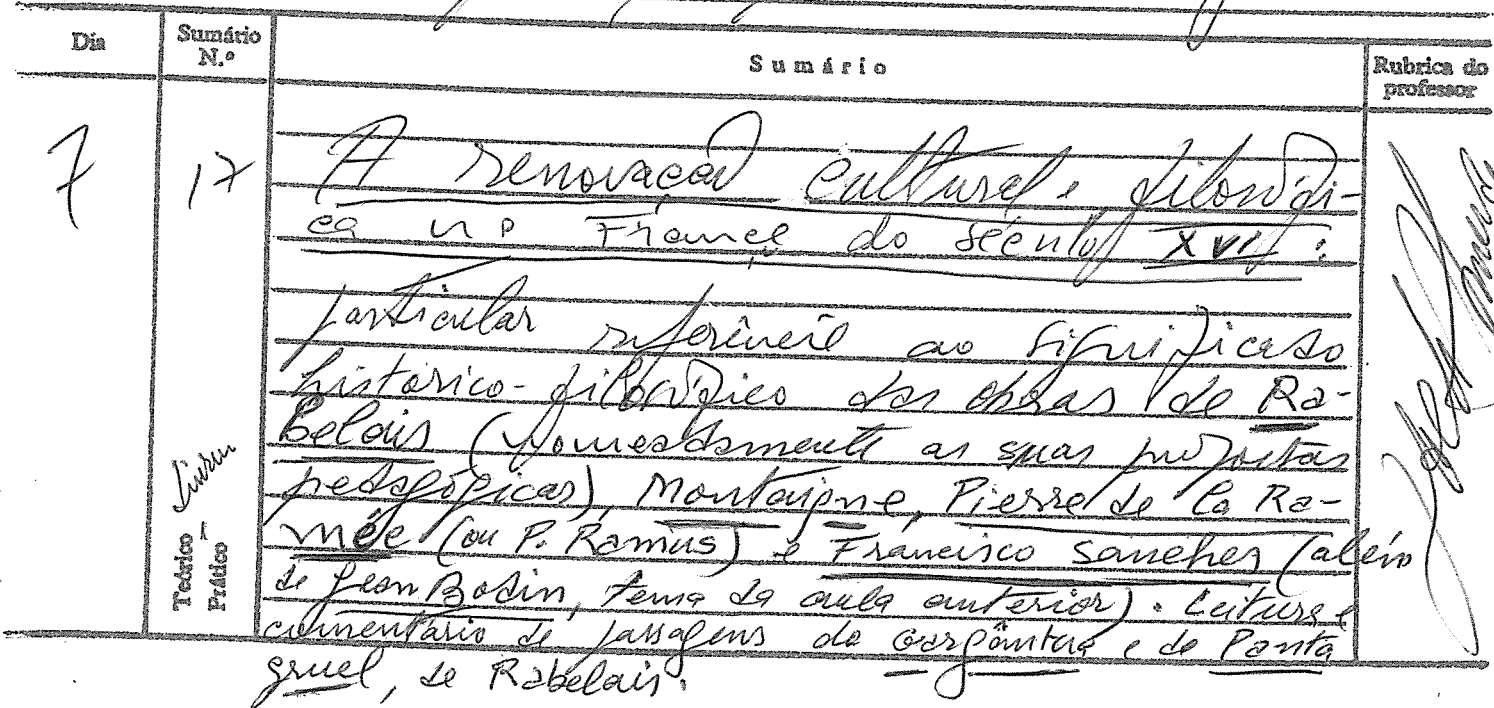 Dia
Sumário
N.º
Sumário
Rubrica do
professor
7
17
A renovação cultural e filosófi-
ca na França do século XVI:
particular referência ao significado
histórico-filosófico das obras de Ra-
belais (nomeadamente as suas propostas
pedagógicas), Montaigne, Pierre de la Ra-
mée (ou P. Ramus) e Francisco Sanches (além
de Jean Bodin, tema da aula anterior). Leitura e
comentário de passagens do Gargântua e do Panta
gruel, de Rabelais.
Teórico -
Prático